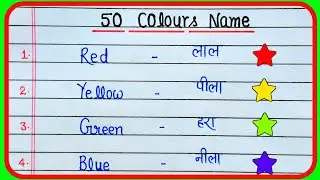 50 Colours Name
1. Red - लाल
2. Yellow - पीला
3. Green - हरा
4. Blue - नीला